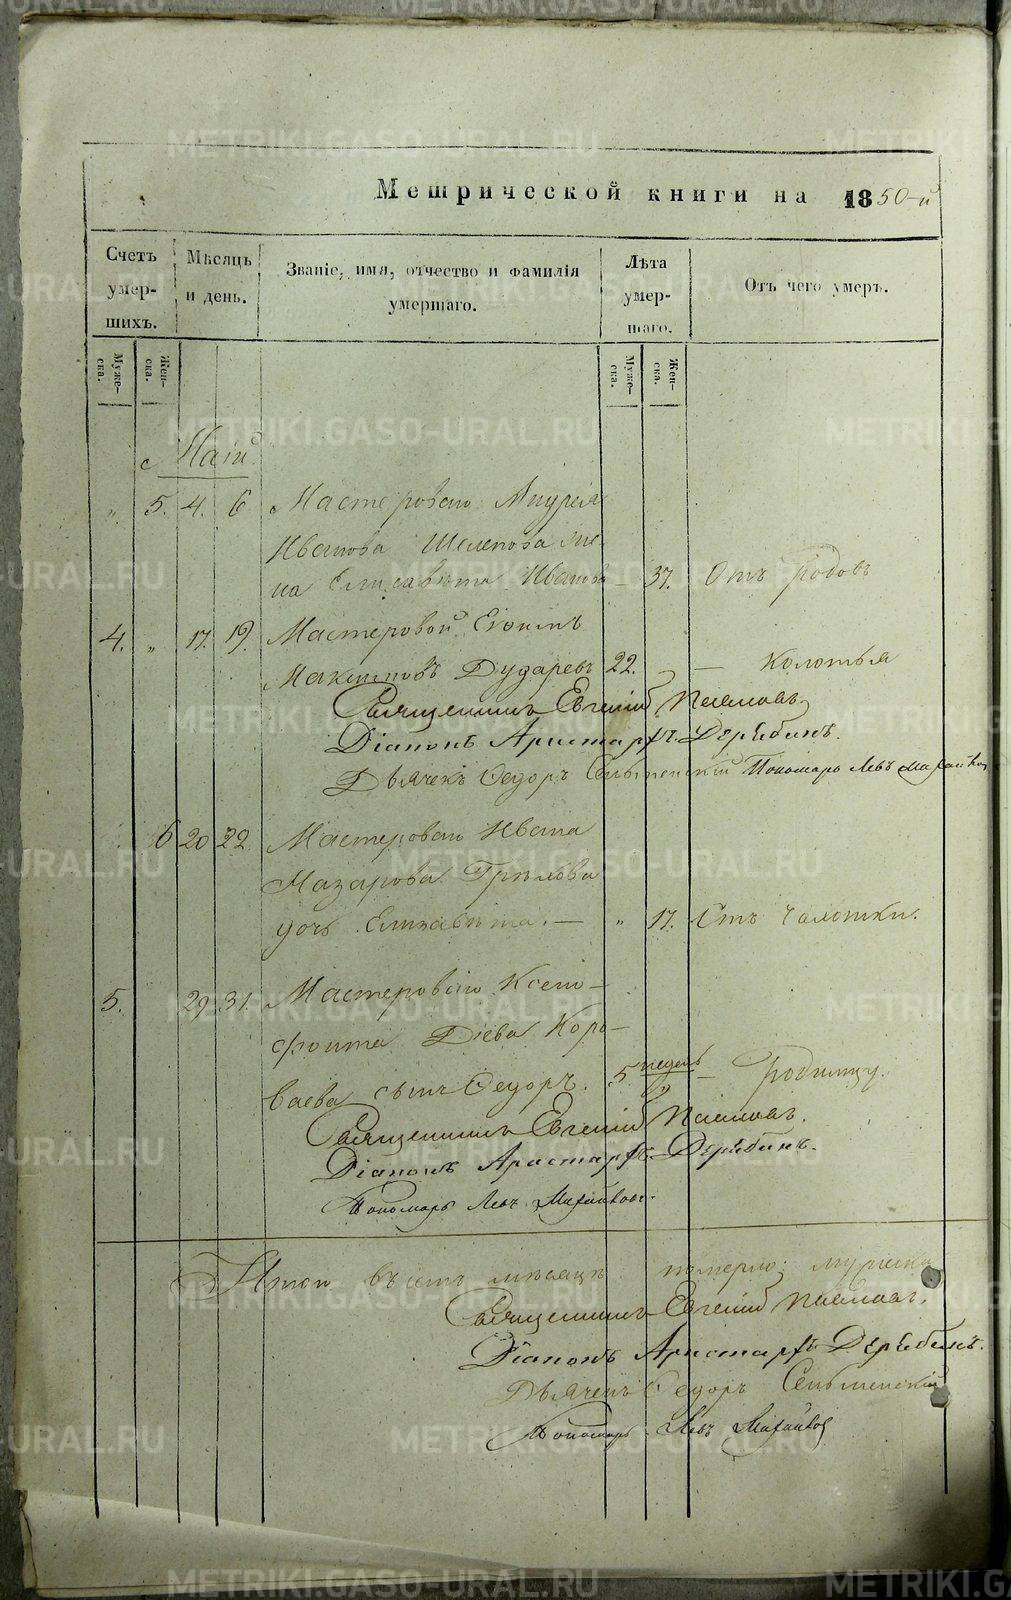 Метрической книги на 1850-й
Счетъ умершихъ.
Мѣсяцъ и день.
Званіе, имя, отчество и фамилія умершаго.
Лѣта умершаго.
Отъ чего умеръ.
Мужеска.
Женска.
Мужеска.
Женска.
Маій
„ 5. 4. 6 Мастероваго
Иванова Шелепова же-
на Елисавета Иванова — 37. Отъ родовъ
4. „ 17. 19. Мастеровой Ефимъ
Максимовъ Дударевъ 22. — Колотья
Священникъ Евгеній
Діаконъ Аристархъ Дерябинъ.
Дьячекъ Ѳедоръ Пономарь Левъ
6 20 22. Мастероваго Ивана
Назарова
дочь Елизавета. — „ 17. Отъ чахотки.
5. 29. 31. Мастероваго Ксено-
фонта Діева Коро-
ваева сынъ Ѳедоръ. 5 недель — Родимцу.
Священникъ Евгеній
Діаконъ Аристархъ Дерябинъ.
Пономарь Левъ
Итого въ семъ месяце померло: мужеска
Священникъ Евгеній
Діаконъ Аристархъ Дерябинъ.
Дьячекъ Ѳедоръ
Пономарь Левъ
METRIKI.GASO-URAL.RU